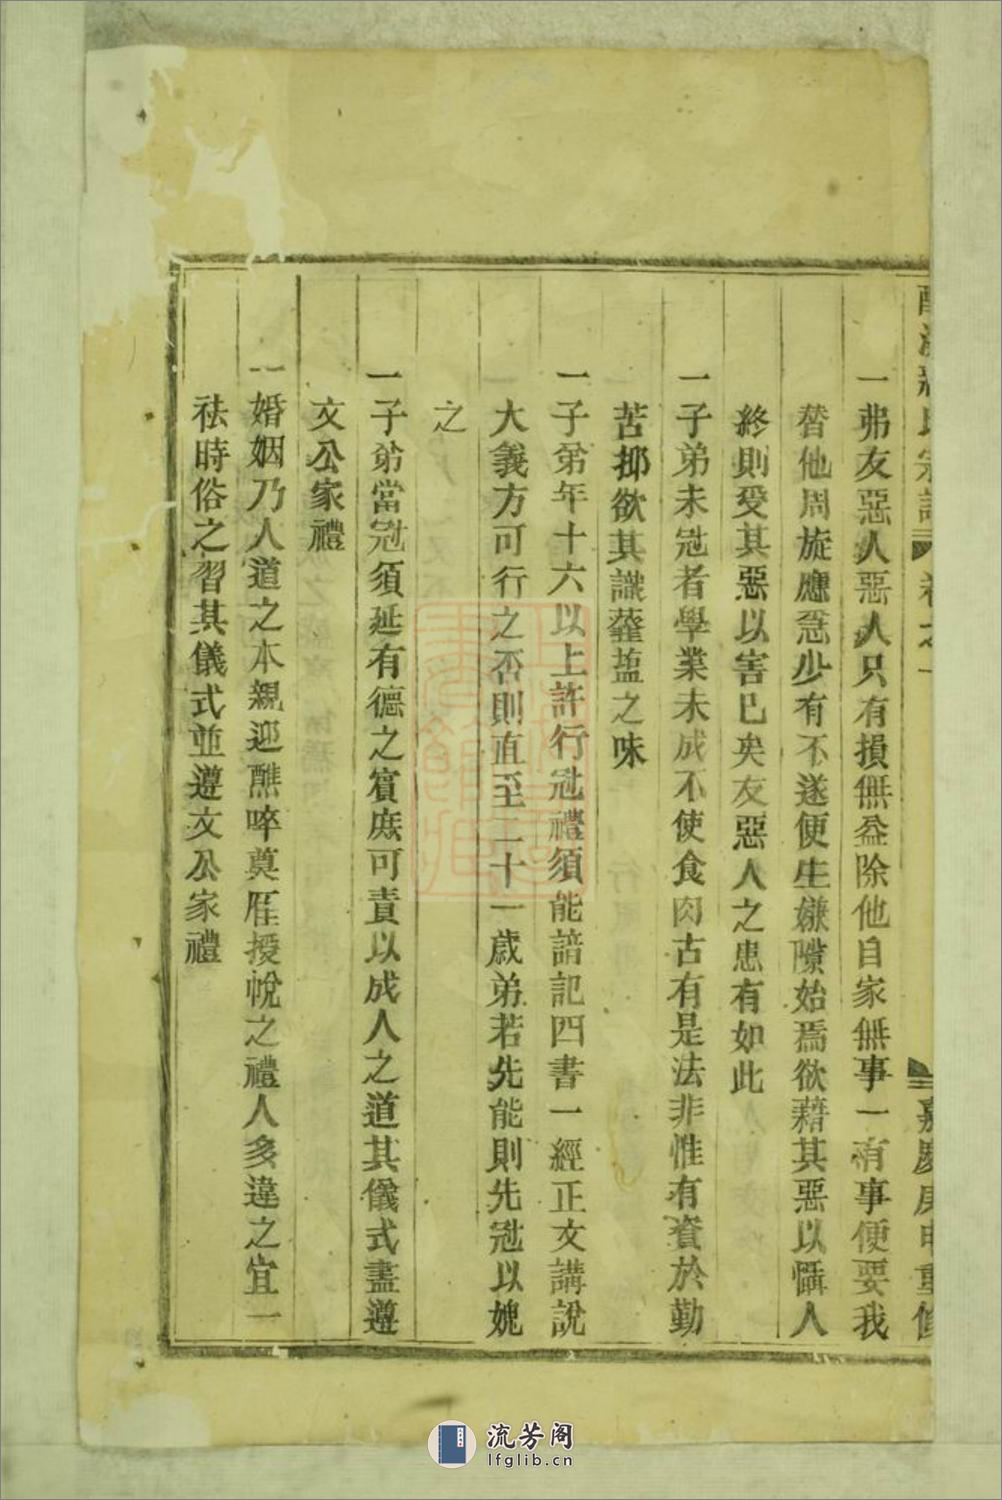 氏宗譜 卷之一 嘉慶庚申重修
一弗友惡人惡人只有損無益除他自家無事一有事便要我
替他周旋應急少有不遂便生嫌隙始焉欲藉其惡以懾人
終則受其惡以害己矣友惡人之患有如此
一子弟未冠者學業未成不使食肉古有是法非惟有資於勤
苦抑欲其識虀塩之味
一子弟年十六以上許行冠禮須能諳記四書一經正文講說
大義方可行之否則直至二十一歲弟若先能則先冠以媿
之
一子弟當冠須延有德之賓庶可責以成人之道其儀式盡遵
文公家禮
一婚姻乃人道之本親迎醮啐奠雁授帨之禮人多違之宜一
祛時俗之習其儀式並遵文公家禮
流芳阁
lfglib.cn